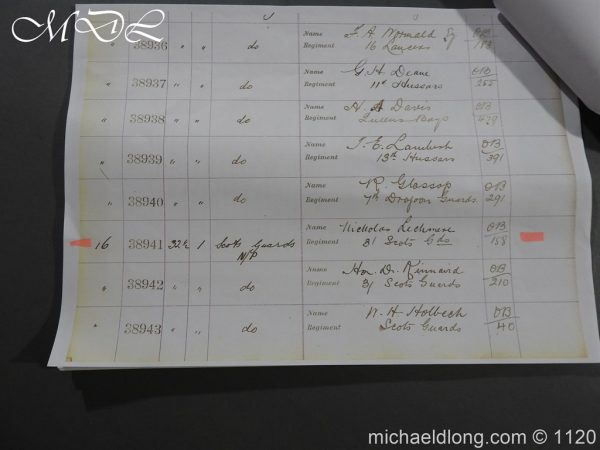 MDL
38936 " " do Name F. A. Normald OB
Regiment 16 Lancers
" 38937 " " do Name G. H. Deane OB
Regiment 11th Hussars 255
" 38938 " " do Name H. A. Davis OB
Regiment Queens Bays 429
" 38939 " " do Name T. E. Lambert OB
Regiment 13th Hussars 391
" 38940 " " do Name R. Glossop OB
Regiment 7th Dragoon Guards 291
16 38941 32½ 1 Scots Guards Name Nicholas Lechmere OB
N/P Regiment 3/ Scots Gds 158
" 38942 " " do Name Hon. Dr. Kinnaird OB
Regiment 3/ Scots Guards 210
" 38943 " " do Name W. H. Holbech OB
Regiment Scots Guards 40
michaeldlong.com © 1120